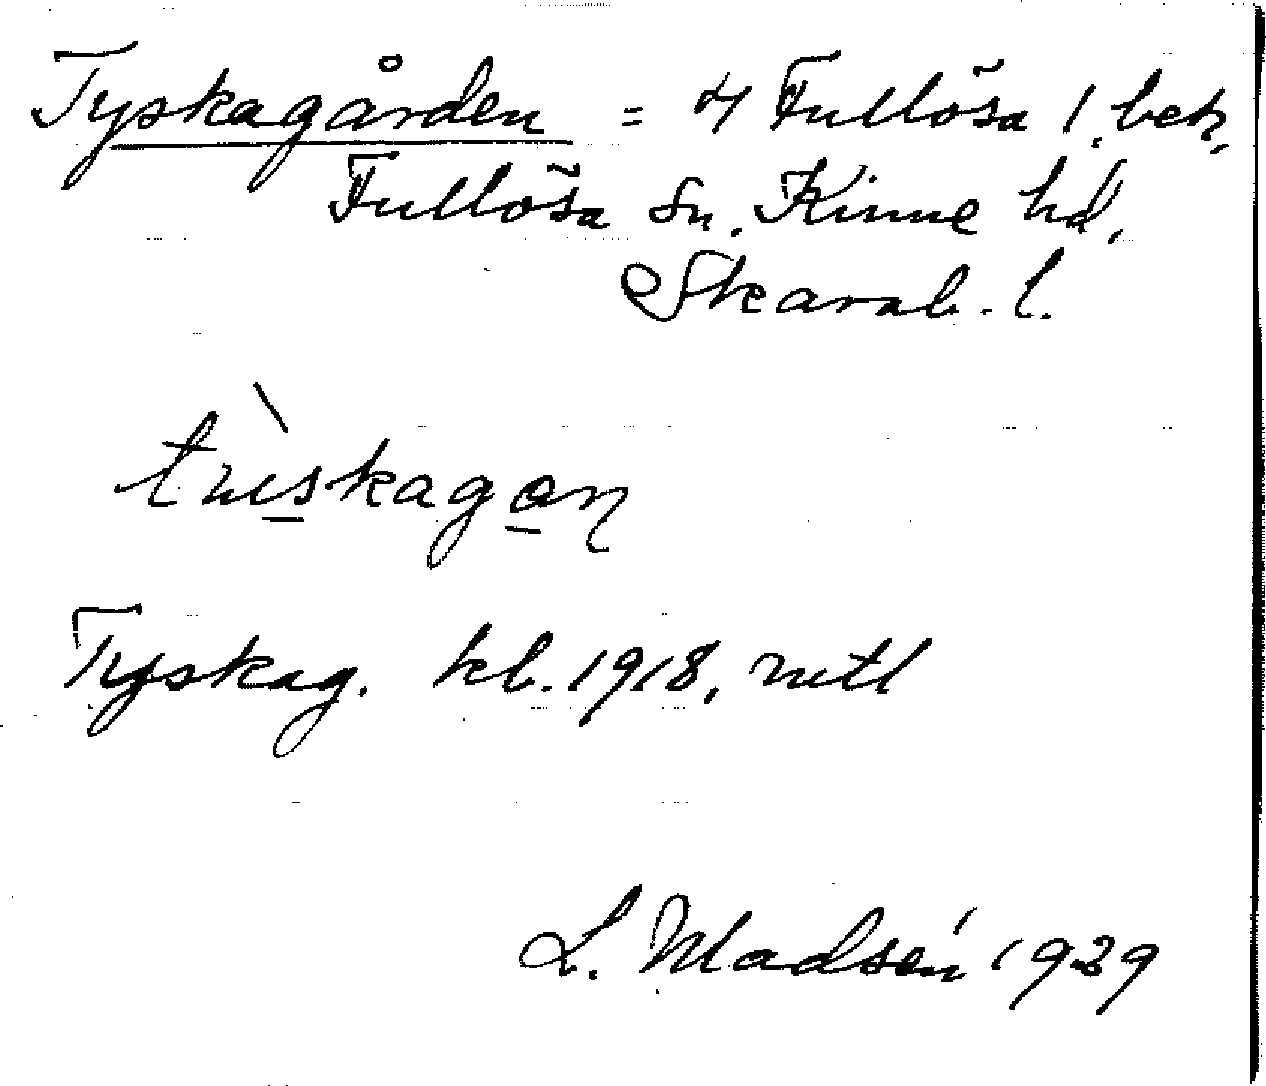 Tyskagården = 4 Fullösa 1. beh.
Fullösa sn. Kinne hd.
Skarab. l.
Tyskag. kb. 1918,
L. Madsén 1929